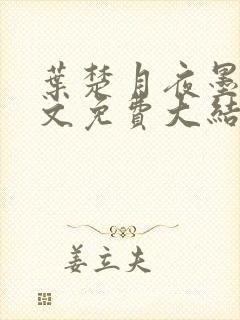 葉楚月夜墨
文免費大結
姜立夫